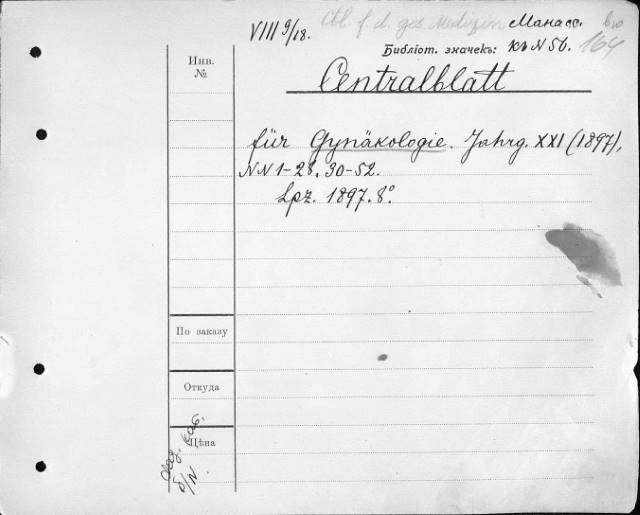 VIII 9/18.
Cbl. f. d. ges. Medizin
Манасс.
164
Библіот. значекъ: къ N 5б.
Инв.
№
Centralblatt
für Gynäkologie. Jahrg. XXI (1897),
NN 1-28. 30-52.
Lpz. 1897. 8°
По заказу
Откуда
Цѣна
каб.
б/N.